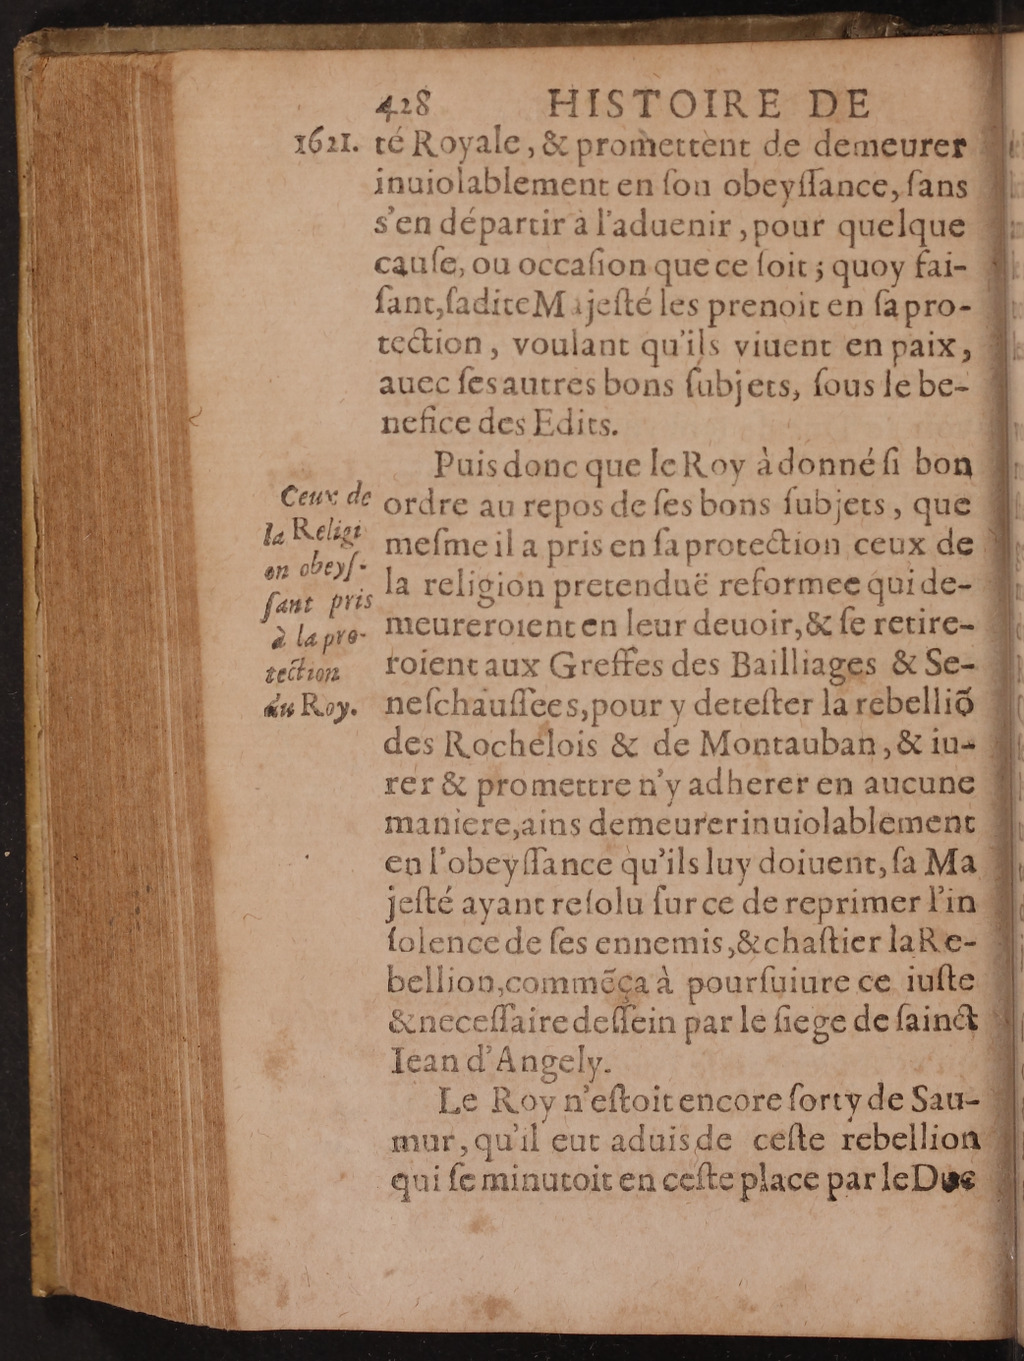 428 HISTOIRE DE
1621. té Royale, & promettent de demeurer
inuiolablement en ſon obeyſſance, ſans
s'en départir à l'aduenir, pour quelque
cauſe, ou occaſion que ce ſoit; quoy fai-
ſant, ſadite Majeſté les prenoit en ſa pro-
tection, voulant qu'ils viuent en paix,
auec ſes autres bons ſubjets, ſous le be-
nefice des Edits.
Puis donc que le Roy à donné ſi bon
ordre au repos de ſes bons ſubjets, que
meſme il a pris en ſa protection ceux de
la religion pretenduë reformee qui de-
meureroient en leur deuoir, & ſe retire-
roient aux Greffes des Bailliages & Se-
neſchauſſees, pour y deteſter la rebelliõ
des Rochelois & de Montauban, & iu-
rer & promettre n'y adherer en aucune
maniere, ains demeurer inuiolablement
en l'obeyſſance qu'ils luy doiuent, ſa Ma
jeſté ayant reſolu ſur ce de reprimer l'in
ſolence de ſes ennemis, & chaſtier la Re-
bellion, commẽça à pourſuiure ce iuſte
& neceſſaire deſſein par le ſiege de ſainct
Iean d'Angely.
Le Roy n'eſtoit encore ſorty de Sau-
mur, qu'il eut aduis de ceſte rebellion
qui ſe minutoit en ceſte place par le Duc
Ceux de
la Religi
on obeyſ-
ſant pris
à la pro-
tection
du Roy.